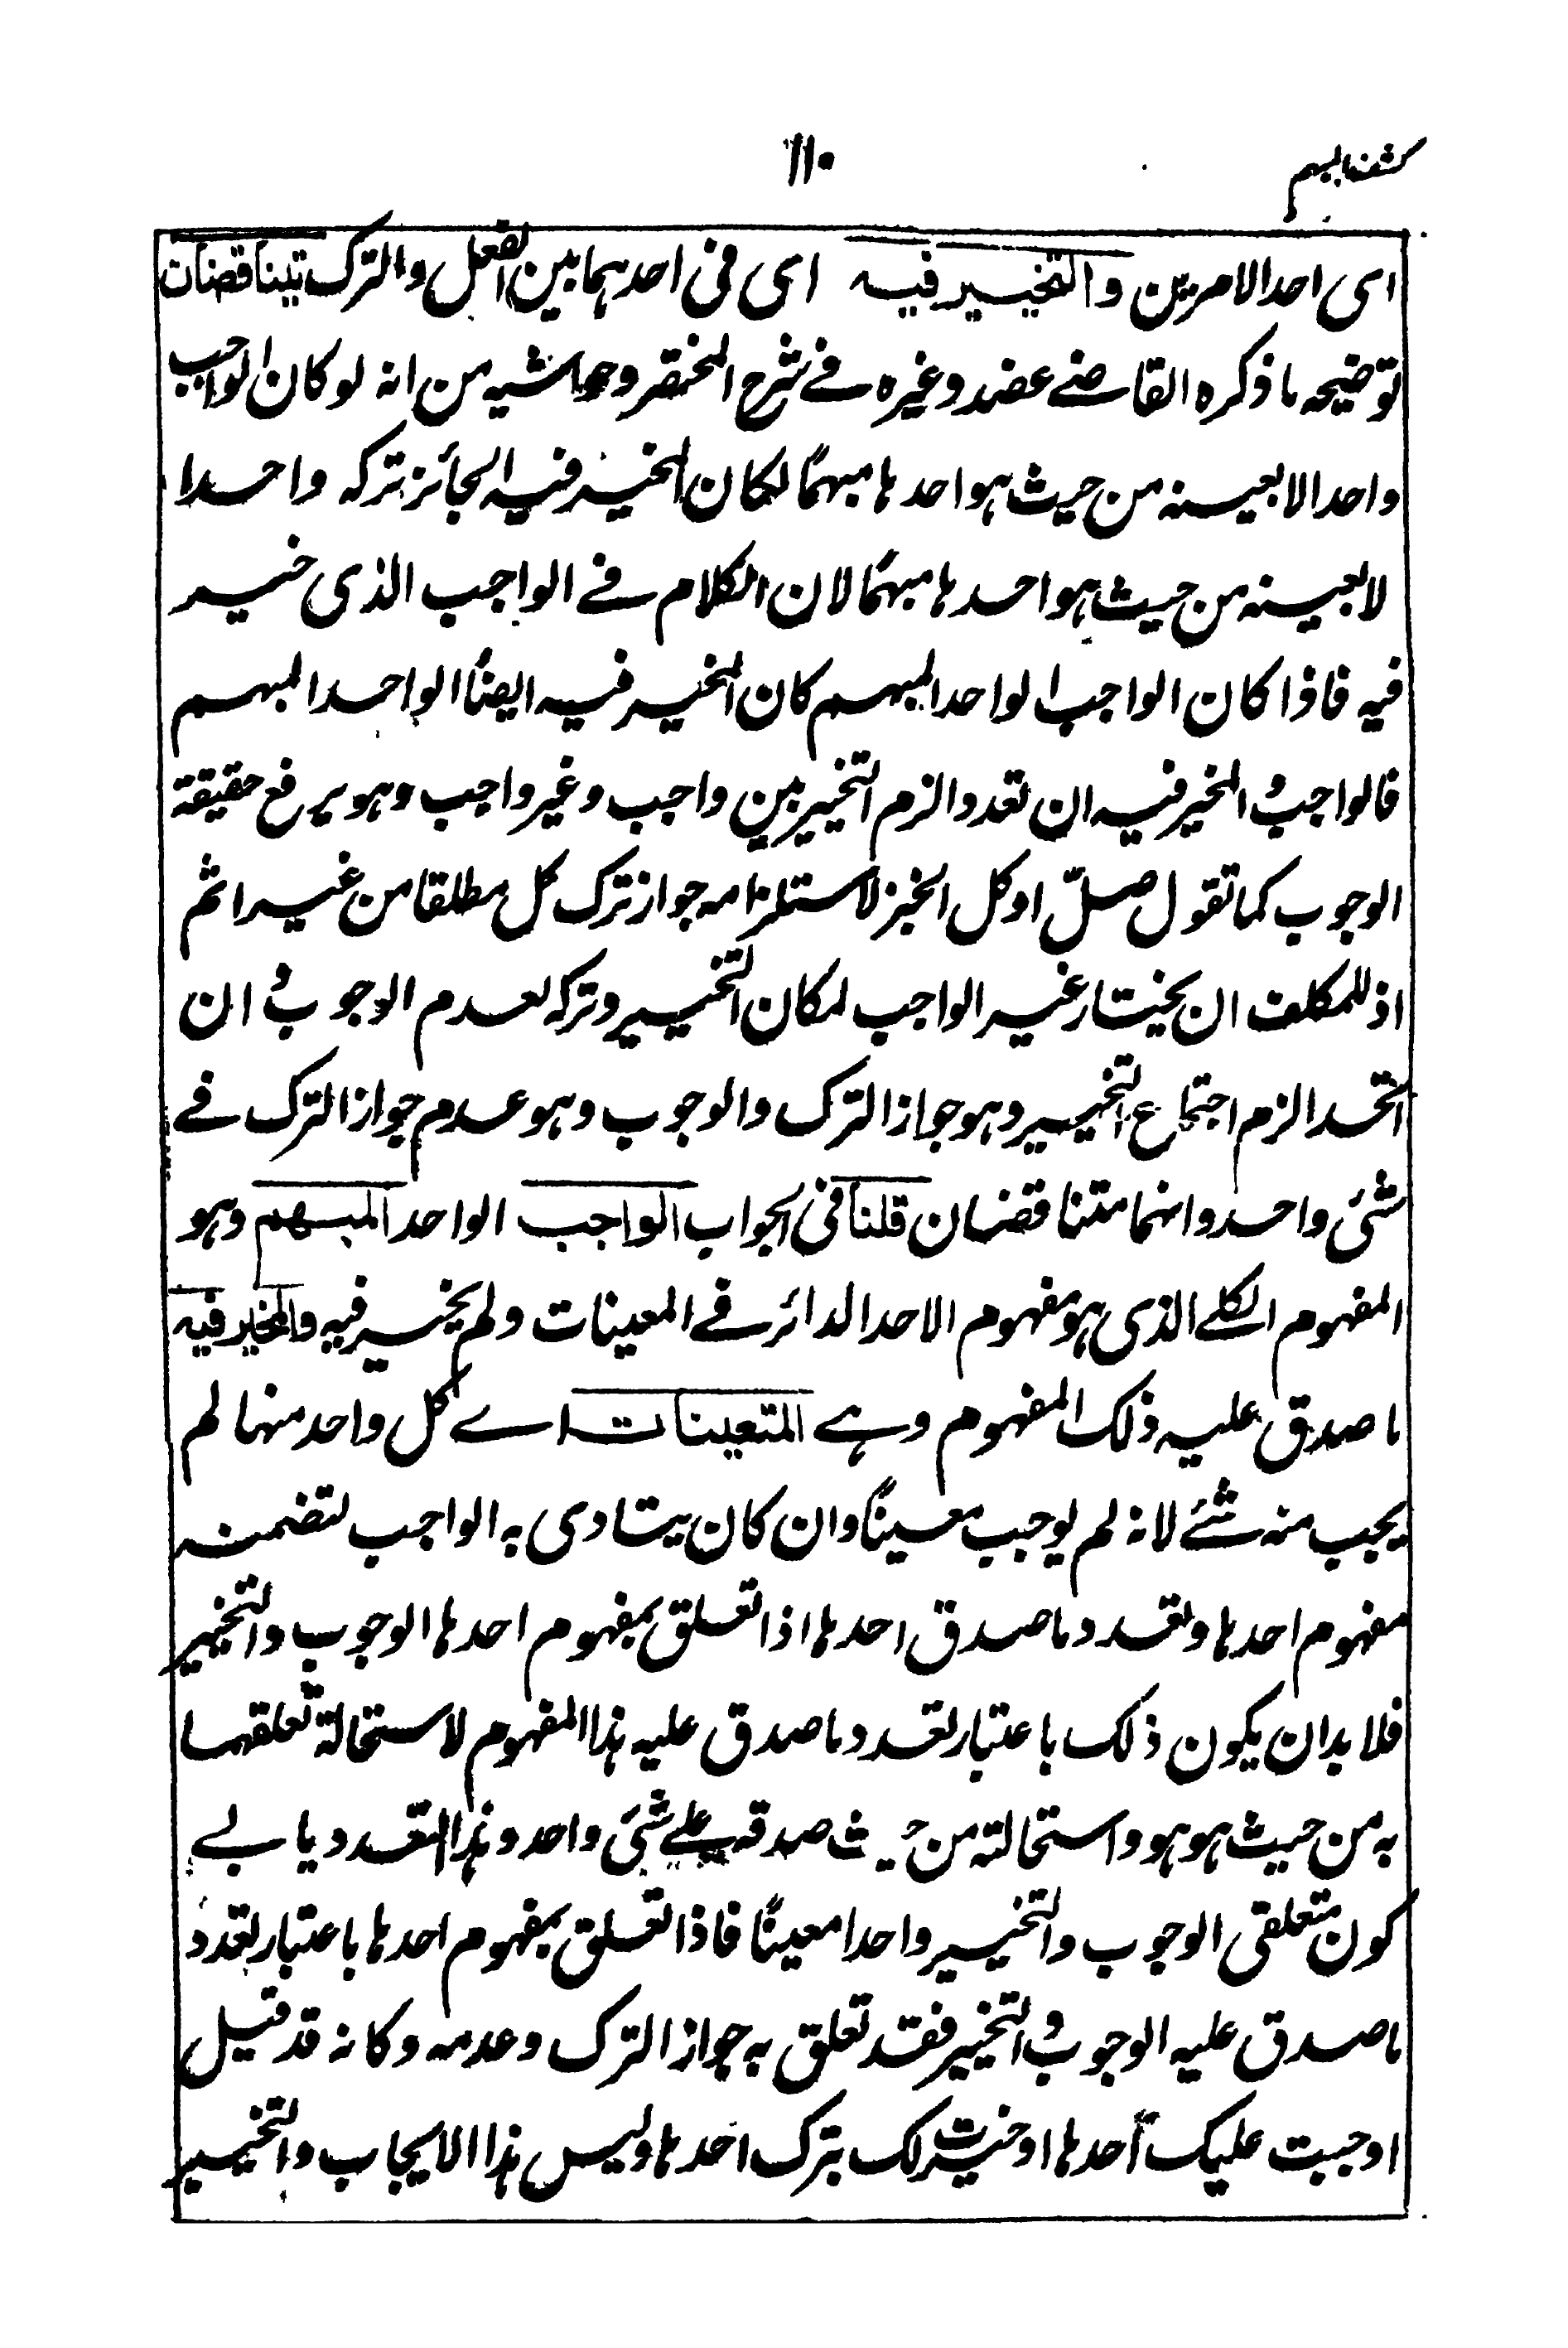 كشف المبهم
١١٠
اى احد الامرين والتخيير فيه اى فى احدهما بين الفعل والترك يتناقضان
توضيحه ما ذكره القاضے عضد وغيره فے شرح المختصر وحاشيه من انه لو كان الواجب
واحد الا بعينه من حيث هو احدها مبهمًا لكان المخير فيه الجائز تركه واحدا
لا بعينه من حيث هو احدها مبهمًا لان الكلام فے الواجب الذى خير
فيه فاذا كان الواجب الواحد المبهم كان المخير فيه ايضًا الواحد المبهم
فالواجب والمخير فيه ان تعددا لزم التخيير بين واجب وغير واجب وهو يرفع حقيقة
الوجوب كما تقول صلّ او كل الخبز لاستلزامه جواز ترك كل مطلقا من غير اثم
اذ للمكلف ان يختار غير الواجب لمكان التخيير وتركه لعدم الوجوب وان
اتحدا لزم اجتماع التخيير وهو جواز الترك والوجوب وهو عدم جواز الترك فے
شئ واحد وانهما متناقضان قلنا فى الجواب الواجب الواحد المبهم وهو
المفهوم الكلے الذى هو مفهوم الاحد الدائر فے المعينات ولم يخير فيه والمخير فيه
ما صدق عليه ذلك المفهوم وہے المتعينات اے كل واحد منها لم
يجب منه شئے لانه لم يوجب معينًا وان كان يتادى به الواجب لتضمنه
مفهوم احدها وتعدد ما صدق احدها اذا تعلق بمفهوم احدها الوجوب والتخيير
فلا بد ان يكون ذلك باعتبار تعدد ما صدق عليه هذا المفهوم لاستحالة تعلقهما
به من حيث هو هو واستحالته من حيث صدقه علے شئ واحد وهذا التعدد يابے
كون متعلقى الوجوب والتخيير واحدا معينًا فاذا تعلق بمفهوم احدها باعتبار تعدد
ما صدق عليه الوجوب والتخيير فقد تعلق به جواز الترك وعدمه وكانه قد قيل
اوجبت عليك احدها او خيرت لك بترك احدها وليس هذا الايجاب والتخيير